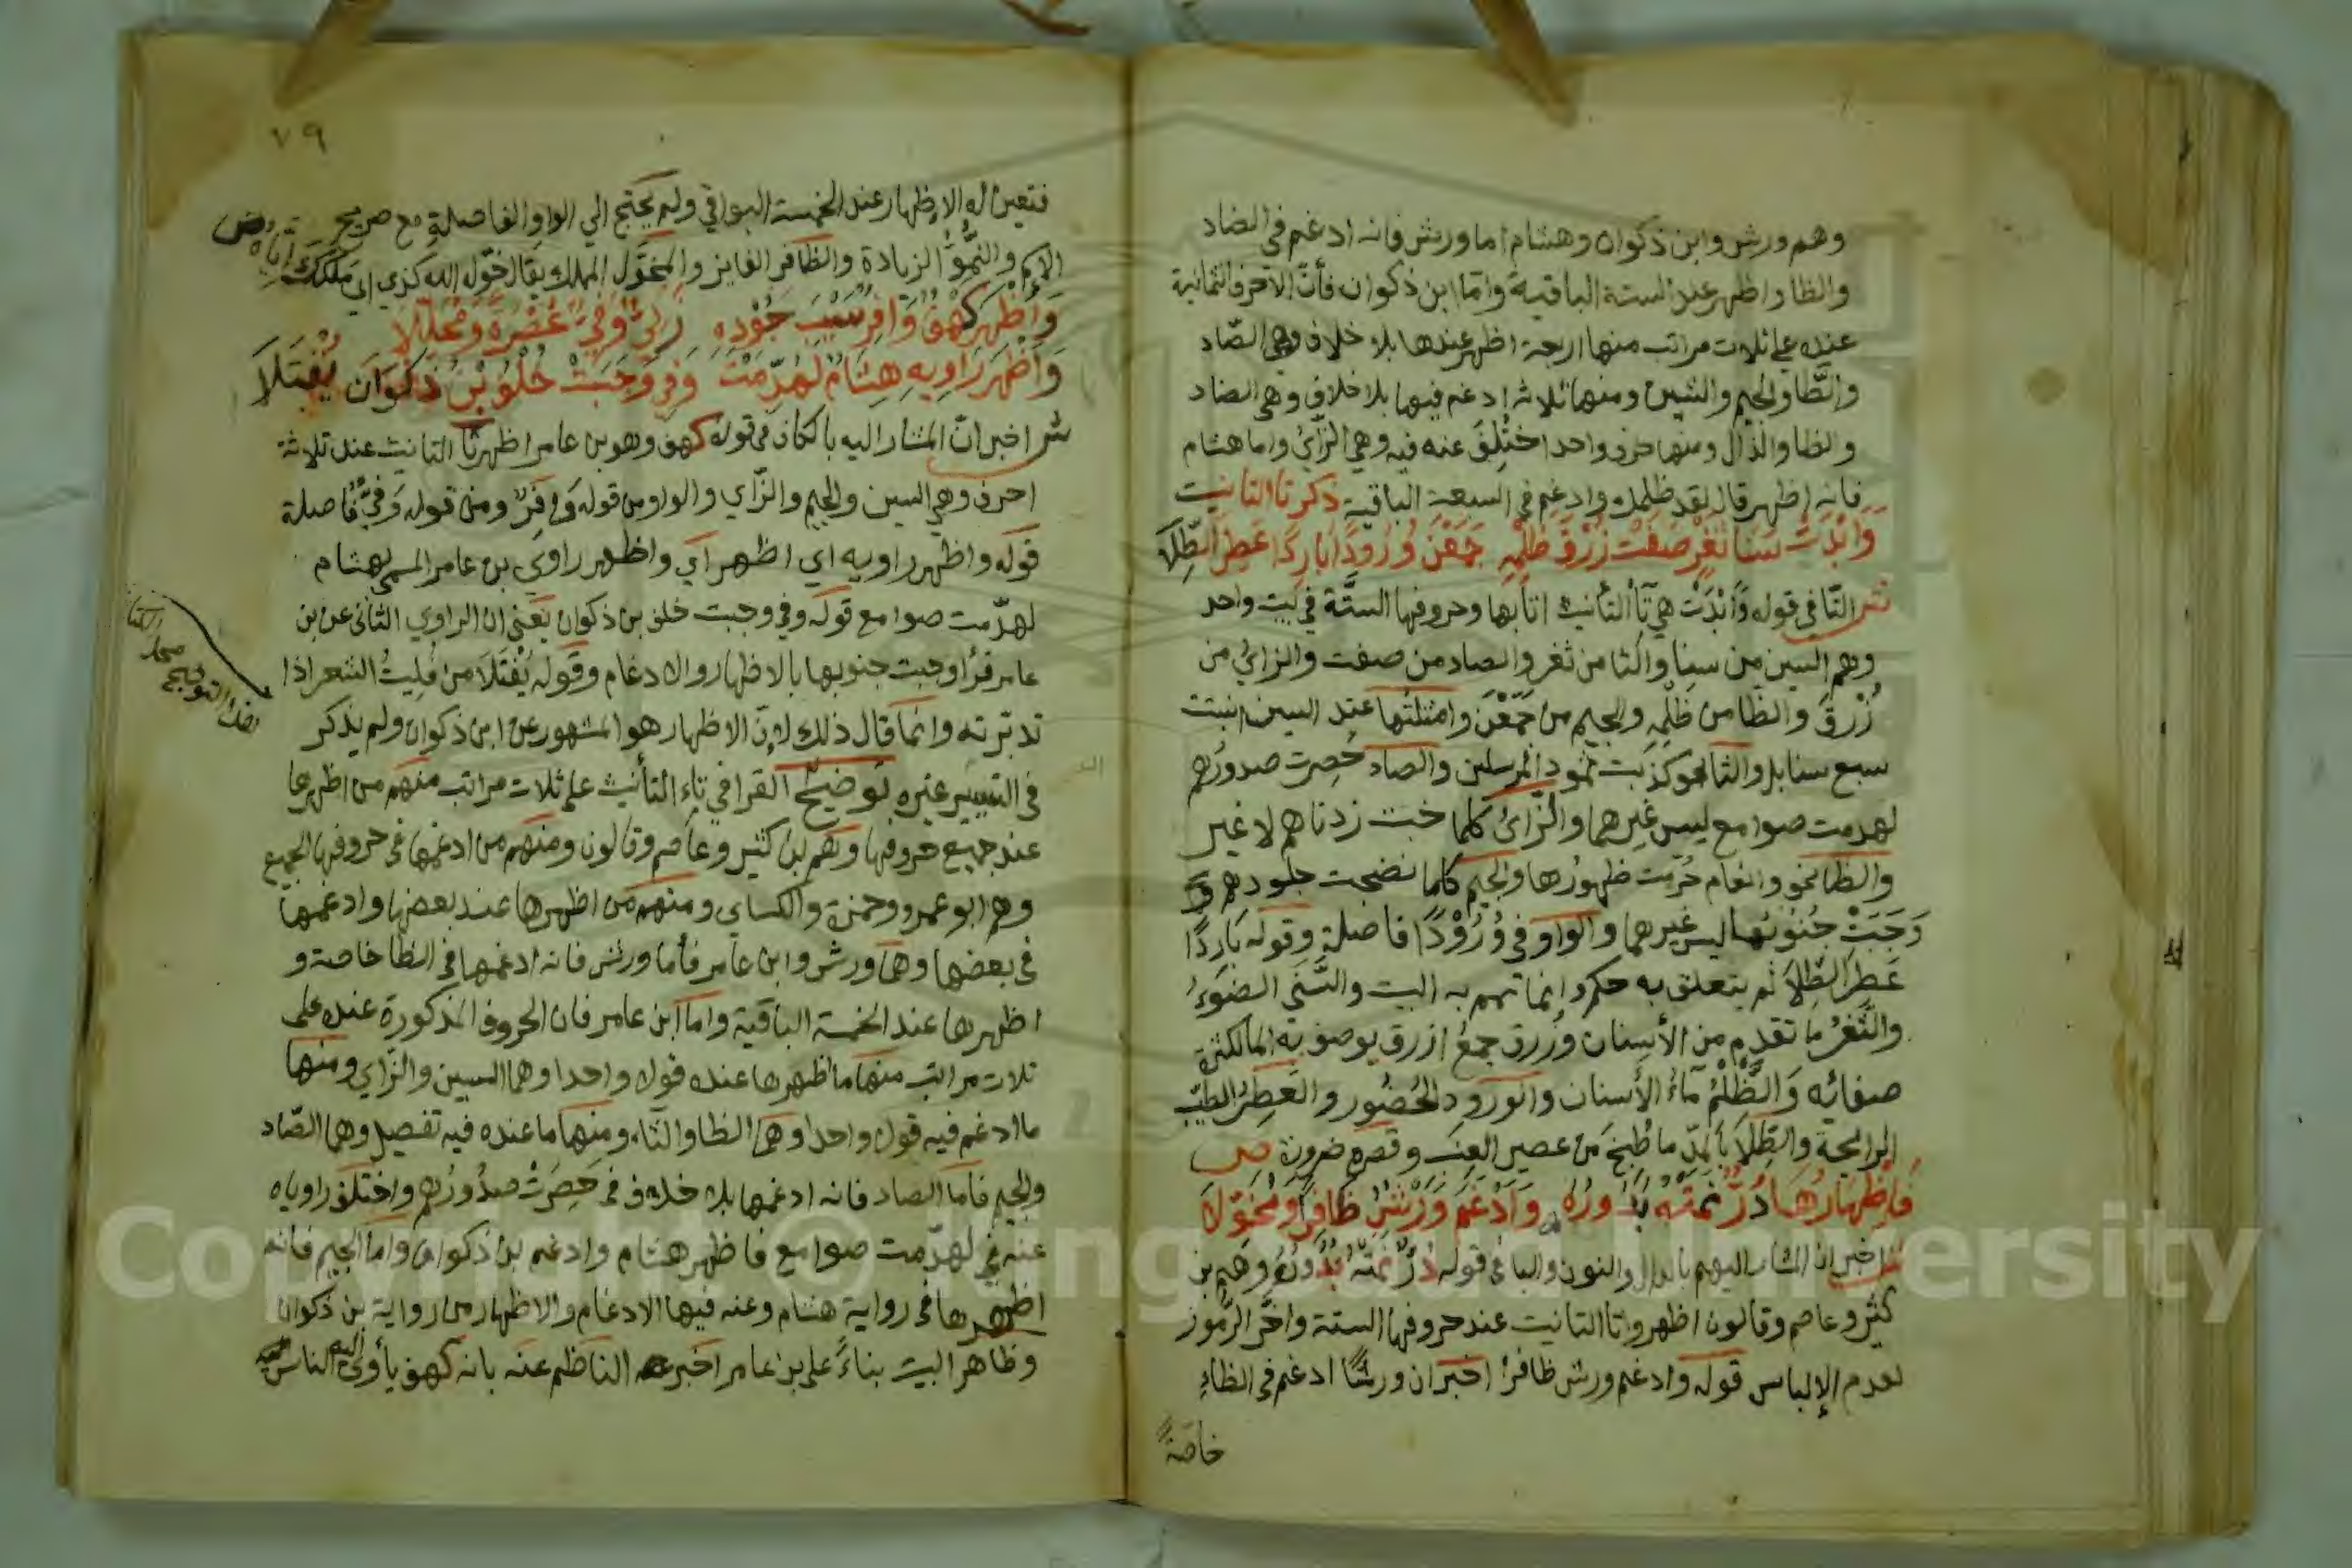 وهم ورش وابن ذكوان وهشام اما ورش فانه ادغم في الضاد
والظا واظهر عند الستة الباقية وامّا ابن ذكوان فأنّ الأحرف الثمانية
عنده علي ثلاث مراتب منها اربعة اظهر عندها بلا خلاف وهي الصّاد
والثّا والجيم والشين ومنها ثلاثه ادغم فيها بلا خلاف وهي الضاد
والظا والذال ومنها حرف واحد اختُلِفَ عنه فيه وهي الزّايُ واما هشام
فانه اظهر قال لقد ظلمك وادغم في السبعة الباقية ذكر تا التانيث
وَأَبْدَتْ سَنَا ثَغْرٍ صَفَتْ زُرْقُ ظَلْمِهِ جَمَعْنَ وُرُودًا بَارِدًا عَطِرَ الطِّلَا
ش التّا في قوله وَأَبْدَتْ هي تآ التأنيث اتا بها وحروفها الستَّة في بيت واحد
وهم السين من سنا والثا من ثغر والصاد من صفت والزايُ من
زُرْقُ والظا من ظَلْمِهِ والجيم من جَمَعْنَ وامثلتُها عند السين انبتت
سبع سنابل والثا نحو كذبت ثمود المرسلين والصاد حُصِرت صدورُهم
لهدمت صوامع ليس غيرهما والزّايُ كلما خبت زدناهم لا غير
والظا نحو وانعام حُرّمت ظهورُها والجيم كلما نضجت جلودهم وَ
وَجَبَتْ جُنُوبُهَا ليس غيرهما والواو في وُرُوْدًا فاصلة وقوله بَارِدًا
عَطِرَ الطِّلَا لم يتعلق به حكم وانما تمم به البيت والسَّنَي الضوءُ
والثَّغْرُ ما تقدم من الأسنان وزرق جمعُ ازرق يوصف به الما لكثرة
صفائه وَالظَّلْمُ مَاءُ الأسنان والورود الحُضُور والعَطِرُ الطيّب
الرايحة والطِلَا بالمدّ ما طُبخَ من عصير العِنَب وقصره ضرورة ص
فَإِظْهَارُهَا دُرٌّ نَمَتْهُ بُدُورُهُ وَأَدْغَمَ وَرْشٌ ظَافِرًا وَمُخَوَّلَا
ش اخبر ان المشار اليهم بالدال والنون والبا في قوله دُرٌّ نَمَتْهُ بُدُورُهُ وهم بن
كثير وعاصم وقالون اظهروا تا التانيث عند حروفها الستة واخّر الرّموز
لعدم الإلباس قوله وادغم ورش ظافرا اخبر ان ورشًا ادغم في الظاءِ
خاصّةً
٧٩
فتعين له الإظهار عند الخمسة البواقي ولم يحتج الي الواو الفاصلة مع صريح
الاسم والنُّمُوُّ الزيادة والظافر الفايز والمخوّل المملك يقال خوّل الله كذي اي مَلّككَ إيّاه ص
وَأَظْهَرَ كَهْفٌ وَافِرٌ سَيْبُ جُوْدِهِ زَكِيٌّ وَفِيٌّ عُصْرَةً وَمُحَلَّلَا
وَأَظْهَرَ رَاوِيهِ هِشَامٌ لَهُدِّمَتْ وَفِي وَجَبَتْ خُلْفُ بْنِ ذَكْوَانَ يُفْتَلَا
ش اخبر انّ المشار اليه بالكاف في قوله كهف وهو بن عامر اظهر تا التانيث عند ثلاثة
احرف وهي السين والجيم والزّاي والواو من قوله وَافِرٌ ومن قوله وَفِيٌّ فاصلة
قوله واظهر راويه اي اظهر اي واظهر راوي بن عامر المسمي هشام
لهدّمت صوامع قوله وفي وجبت خلف بن ذكوان يعني ان الراوي الثاني عن بن
عامر قرأ وجبت جنوبها بالاظهار والادغام وقوله يُفْتَلَا من فليتُ الشعر اذا
تدبّرته وانمّا قال ذلك لانّ الاظهار هو المشهور عن ابن ذكوان ولم يذكر
في التيسير غيره توضيحٌ القرا في تاء التأنيث علي ثلاث مراتب منهم من اظهرها
عند جميع حروفها وهم بن كثير وعاصم وقالون ومنهم من ادغمها في حروفها الجميع
وهم ابو عمرو وحمزة والكساي ومنهم من اظهرها عند بعضها وادغمها
في بعضها وهما ورش وابن عامر فأما ورش فانه ادغمها في الظا خاصة و
اظهرها عند الخمسة الباقية واما ابن عامر فان الحروف المذكورة عنده علي
ثلاث مراتب منها ما اظهرها عنده قولا واحدا وهما السين والزّاي ومنها
ما ادغم فيه قولا واحدا وهما الظا والثاء ومنها ما عنده فيه تفصيل وهما الصّاد
والجيم فاما الصاد فانه ادغمها بلا خلاف في حَصِرَتْ صدُورُهم واختلف راوياه
عنه في لهدّمت صوامع فاظهر هشام وادغم بن ذكوان واما الجيم فانه
اظهرها في رواية هشام وعنه فيها الادغام والاظهار من رواية بن ذكوان
وظاهر البيت بناءً علي بن عامر اخبر الناظم عنه بانه كهف يأوي اليه الناس
Copyright © King Saud University